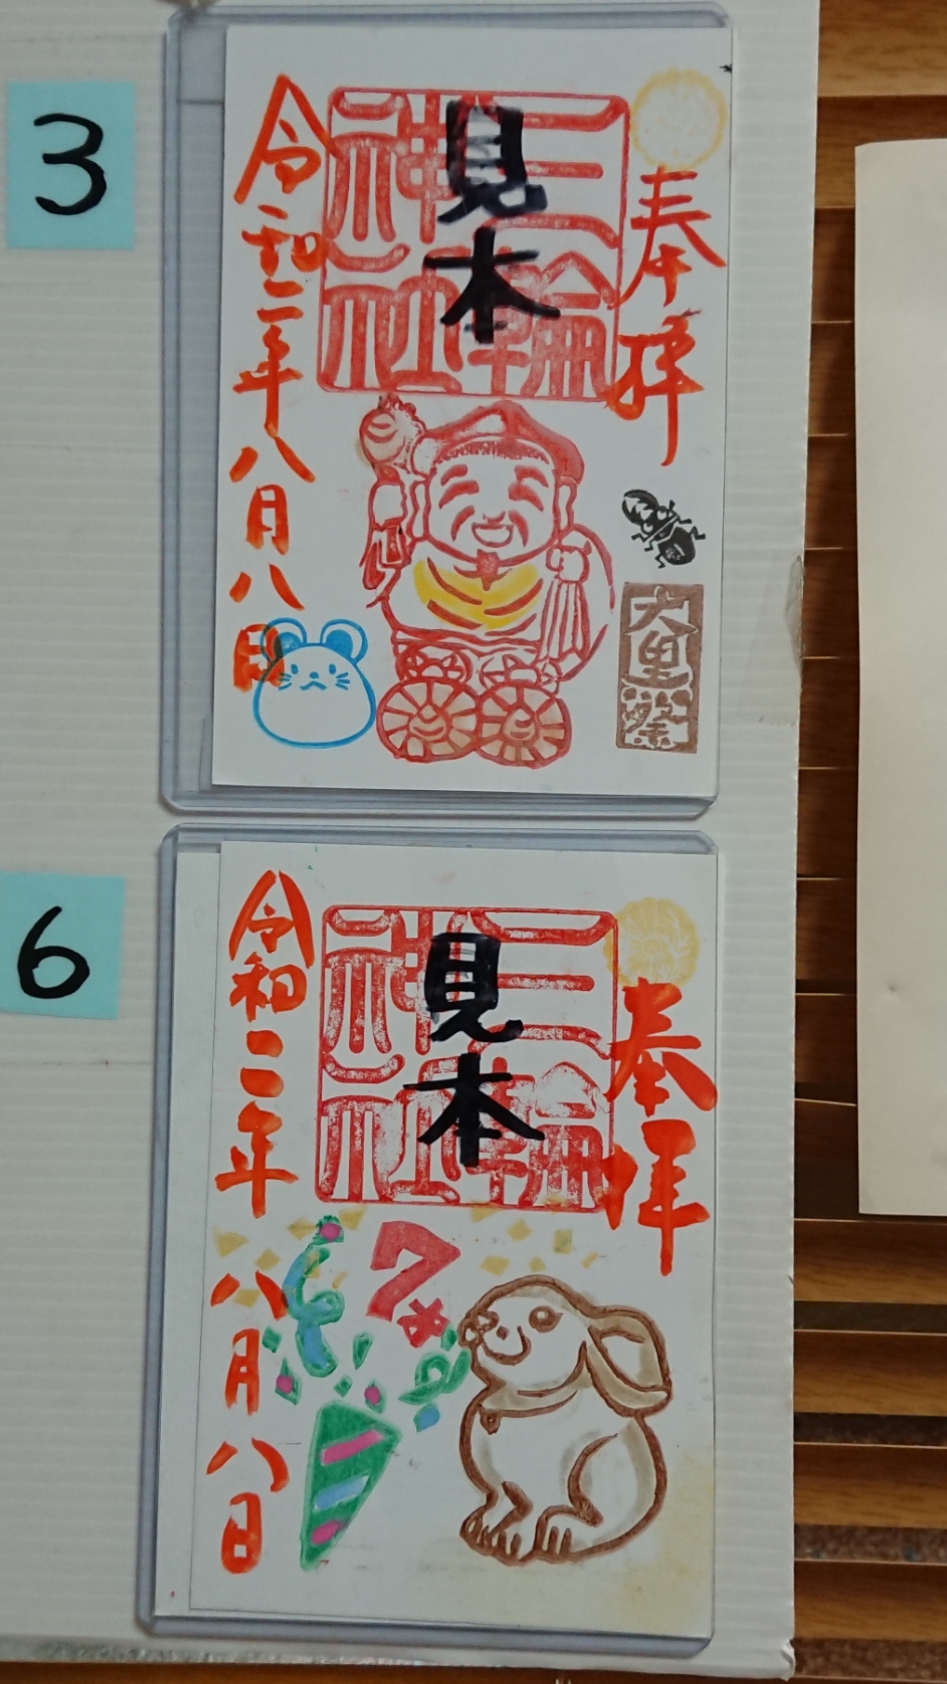 3
奉拝
三輪
神社
見本
大里祭
令和二年八月八日
6
奉拝
三輪
神社
見本
7
令和二年八月八日